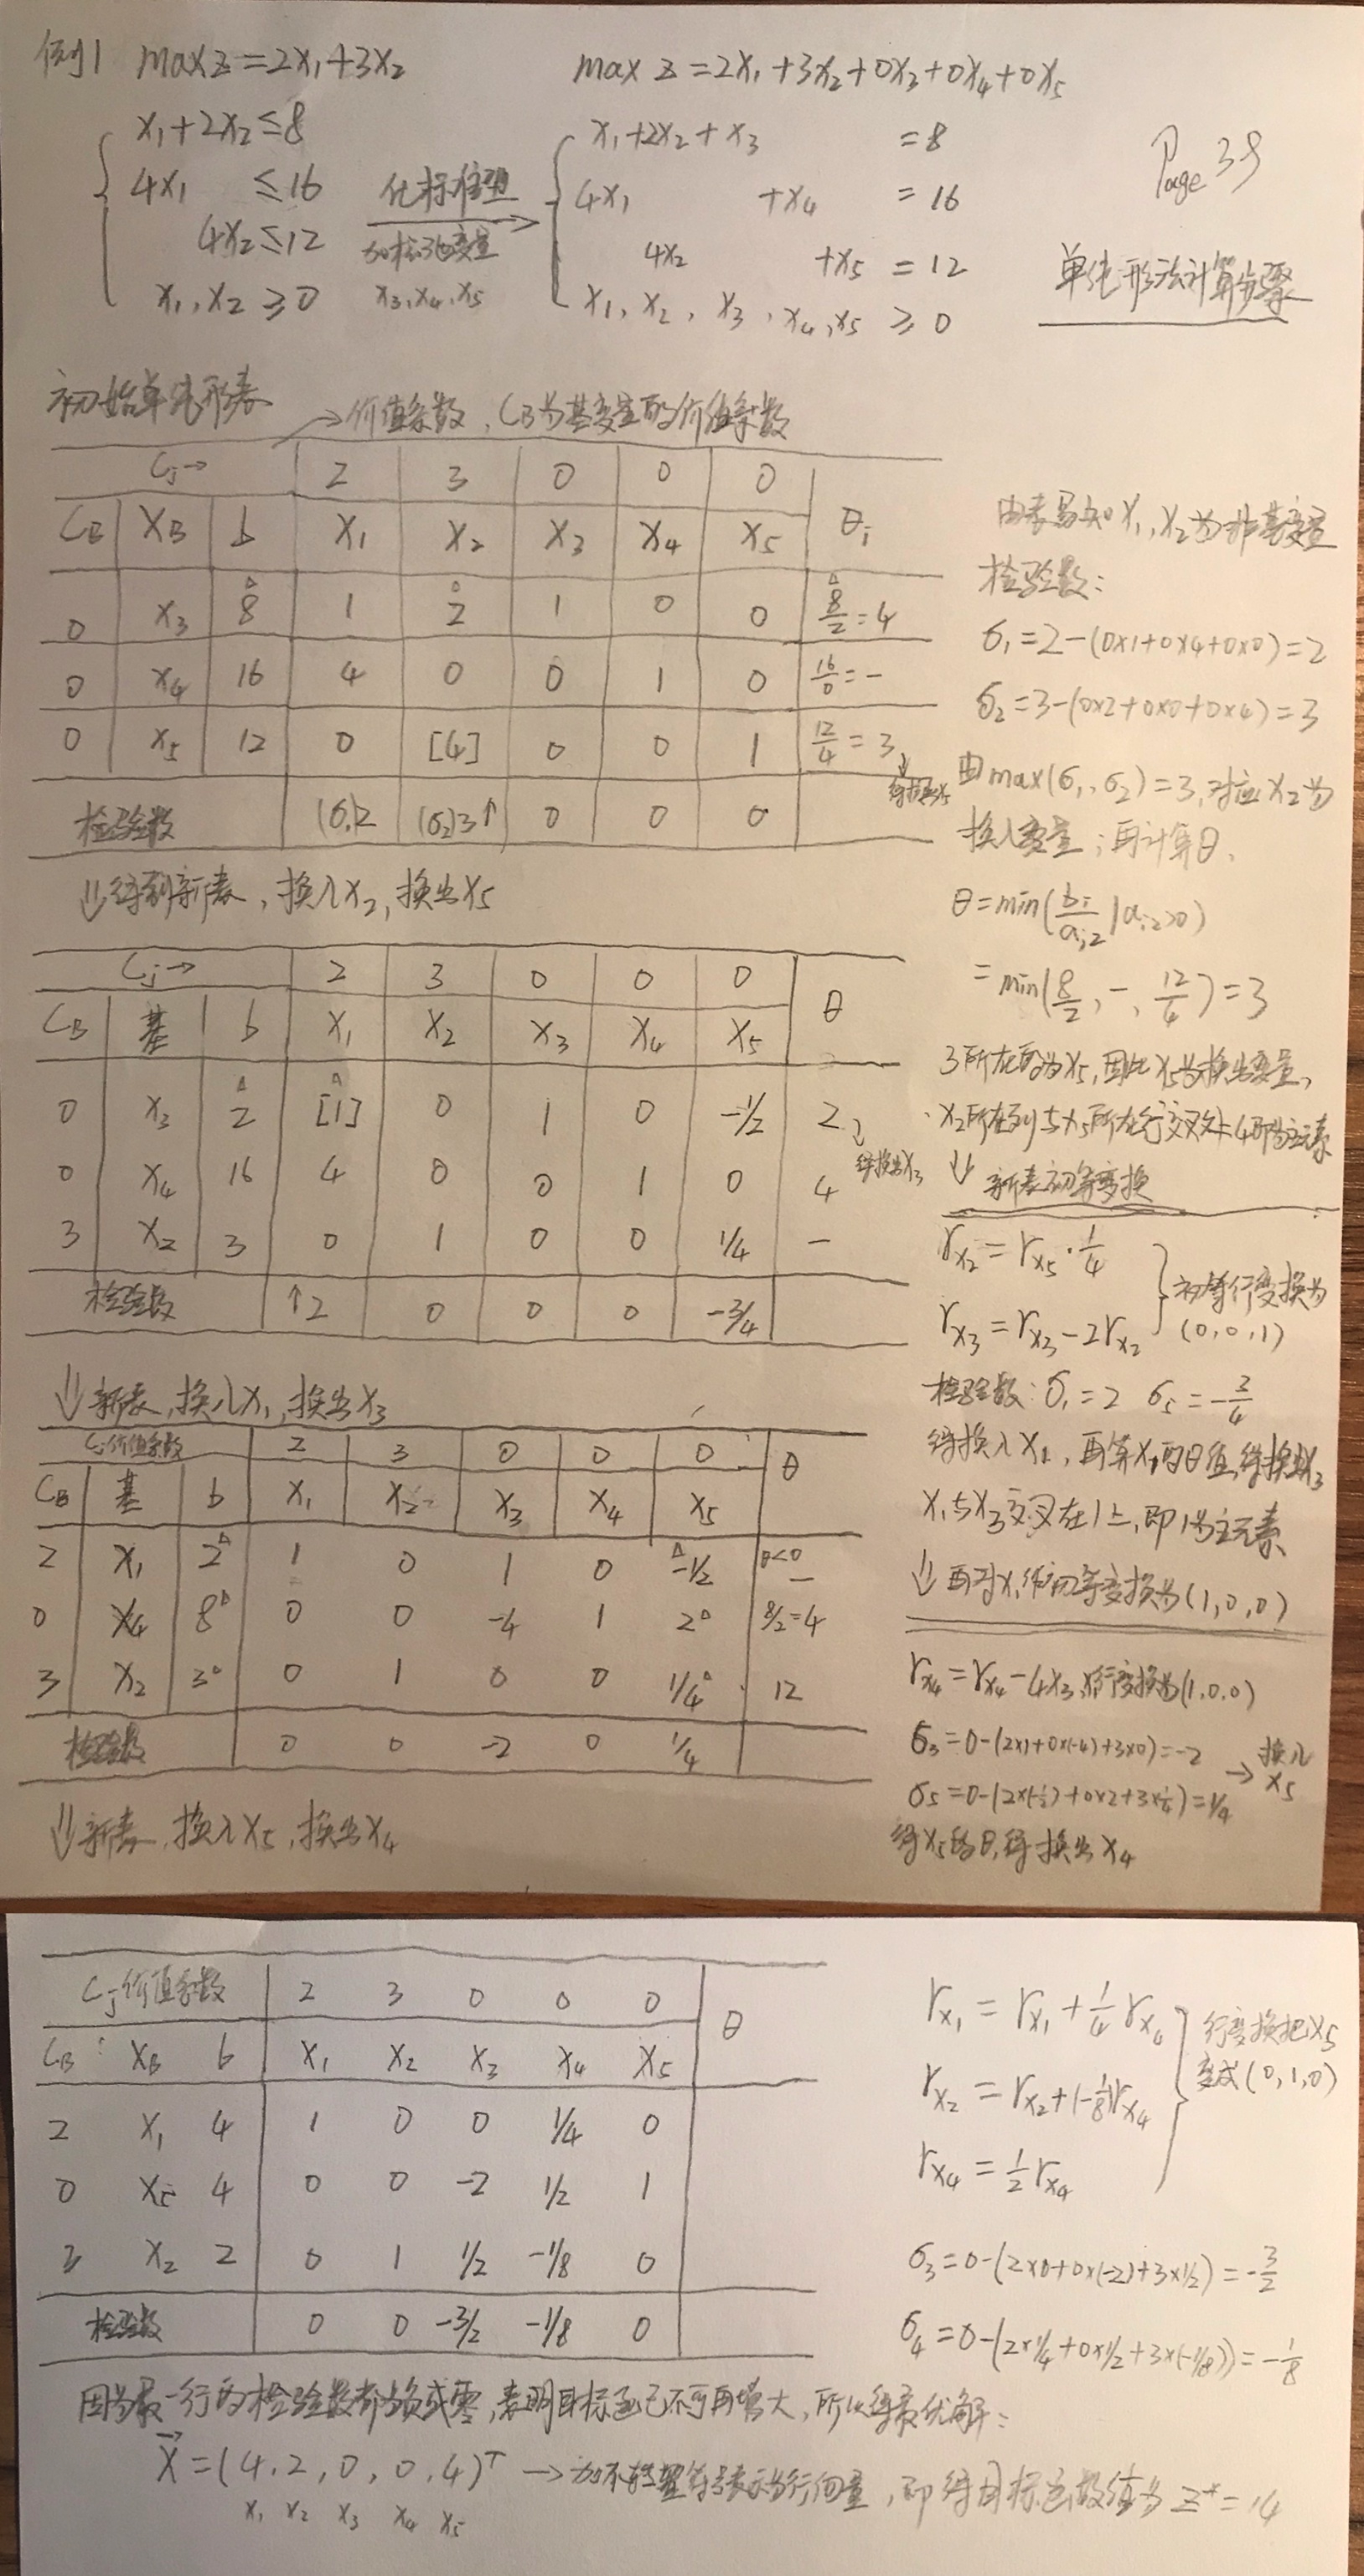 例1 max z=2x₁+3x₂
max z=2x₁+3x₂+0x₃+0x₄+0x₅
x₁+2x₂≤8
4x₁ ≤16
4x₂≤12
x₁,x₂≥0
化标准型
加松弛变量
x₃,x₄,x₅
x₁+2x₂+x₃ =8
4x₁ +x₄ =16
4x₂ +x₅ =12
x₁,x₂,x₃,x₄,x₅≥0
Page 39
单纯形法计算步骤
初始单纯形表
→价值系数,CB为基变量的价值系数
Cj→ 2 3 0 0 0 θi
CB XB b x₁ x₂ x₃ x₄ x₅
0 x₃ 8 1 2 1 0 0 8/2=4
0 x₄ 16 4 0 0 1 0 16/0=-
0 x₅ 12 0 [4] 0 0 1 12/4=3
得换出x₅
检验数 (σ₁)2 (σ₂)3↑ 0 0 0
⇓得到新表,换入x₂,换出x₅
由表易知x₁,x₂为非基变量
检验数:
σ₁=2-(0×1+0×4+0×0)=2
σ₂=3-(0×2+0×0+0×4)=3
由max(σ₁,σ₂)=3,对应x₂为
换入变量;再计算θ,
θ=min(bi/ai2|ai2>0)
=min(8/2,-,12/4)=3
3所在的为x₅,因此x₅为换出变量,
x₂所在列与x₅所在行交叉处4即为主元素
↓ 新表初等变换
Cj→ 2 3 0 0 0 θ
CB 基 b x₁ x₂ x₃ x₄ x₅
0 x₃ 2 [1] 0 1 0 -1/2 2
得换出x₃
0 x₄ 16 4 0 0 1 0 4
3 x₂ 3 0 1 0 0 1/4 -
检验数 ↑2 0 0 0 -3/4
⇓新表,换入x₁,换出x₃
rx₂=rx₅·1/4
rx₃=rx₃-2rx₂
初等行变换为
(0,0,1)
检验数:σ₁=2 σ₅=-3/4
得换入x₁,再算x₁的θ值,得换出x₃
x₁与x₃交叉在1上,即1为主元素
↓再对x₁作初等变换为(1,0,0)
C价值系数 2 3 0 0 0 θ
CB 基 b x₁ x₂ x₃ x₄ x₅
2 x₁ 2 1 0 1 0 -1/2 θ<0 -
0 x₄ 8 0 0 -4 1 2 8/2=4
3 x₂ 3 0 1 0 0 1/4 12
检验数 0 0 -2 0 1/4
⇓新表,换入x₅,换出x₄
rx₄=rx₄-4x₃,行变换为(1,0,0)
σ₃=0-(2×1+0×(-4)+3×0)=-2
σ₅=0-(2×(-1/2)+0×2+3×1/4)=1/4
→换入x₅
得x₅的θ,得换出x₄
Cj价值系数 2 3 0 0 0 θ
CB XB b x₁ x₂ x₃ x₄ x₅
2 x₁ 4 1 0 0 1/4 0
0 x₅ 4 0 0 -2 1/2 1
3 x₂ 2 0 1 1/2 -1/8 0
检验数 0 0 -3/2 -1/8 0
rx₁=rx₁+1/4rx₄
rx₂=rx₂+(-1/8)rx₄
rx₄=1/2rx₄
行变换把x₅
变成(0,1,0)
σ₃=0-(2×0+0×(-2)+3×1/2)=-3/2
σ₄=0-(2×1/4+0×1/2+3×(-1/8))=-1/8
因为最一行的检验数都为负或零,表明目标函已不可再增大,所以得最优解:
X=(4,2,0,0,4)ᵀ→加个转置符号表示为行向量,即得目标函数值为z*=14
x₁ x₂ x₃ x₄ x₅